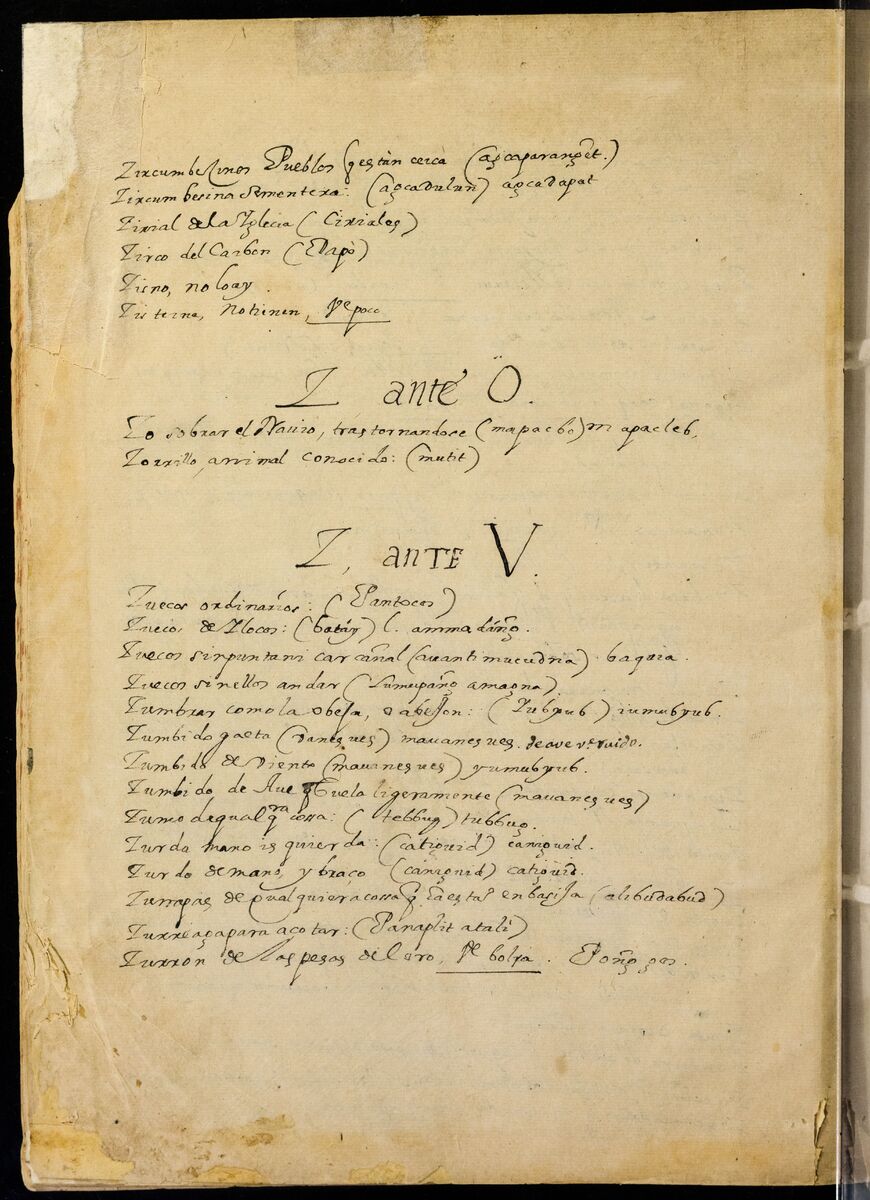 Zircumbezinos Pueblos q̃ estàn cerca (agcaparang̃et.)
Zircumbesina sementera: (agcadulun) agcadapat
Zirial de la Yglecia (Ciriales)
Zirco del Carbon (Dapo)
Zisno, no loay.
Zisterna, no tienen, Vᵉ poco
Z ante O.
Zosobrar el Nauio, trastornandose (mapacbo) mapacleb,
Zorrillo, animal conocido: (mutit)
Z, ANTE V.
Zuecos ordinarios: (Pantocos)
Zuecos de Ylocos: (batáy) l. amma dáng̃.
Zuecos sin punta ni carcañal (auanti mucudna) baquia.
Zuecos sin ellos andar (sumupáng̃ amagna)
Zumbrar como la obeja, o abejon: (Yubyub) iumubyub.
Zumbido gaeta (vanesves) mauanesves. de ave vᵉ ruido.
Zumbido de Viento (mauanesves) yumubyub.
Zumbido de Aue q̃ buela ligeramente (mauanesves)
Zumo de qualqʳᵃ cossa: (tebbug) tubbug.
Zurda mano isquierda: (catiguid) caniguid.
Zurdo de mano, y braço (caniguid) catiguid.
Zurrapas de qualquiera cossa q̃ està en basija (alibudabud)
Zurreaga para açotar: (Panaplit atali)
Zurron de las pesas del oro, Vᵉ bolza.